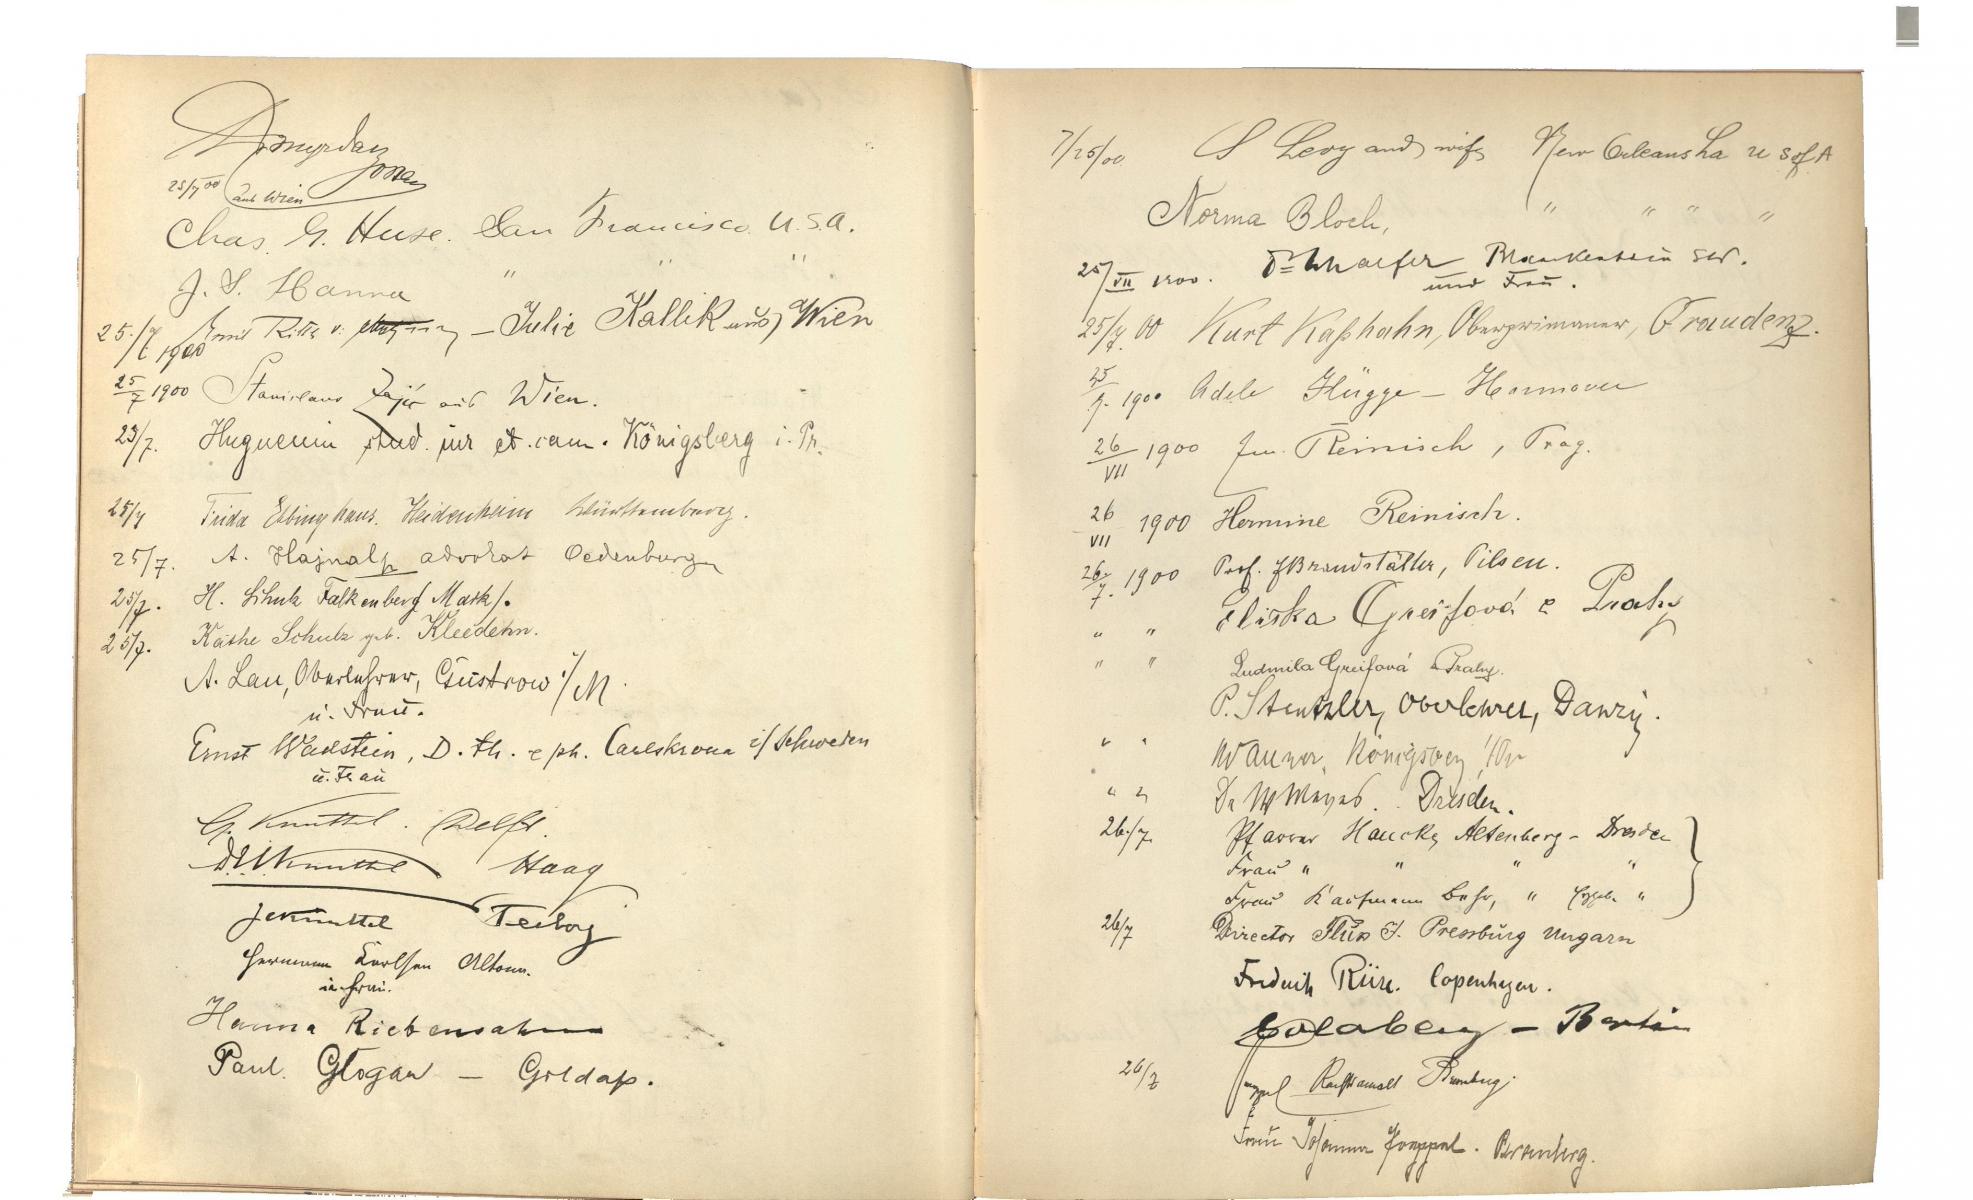 25/7 00
aus Wien
Chas. G. Huse. San Francisco. U.S.A.
J. S. Hanna " " "
25./7. 1900 Emil Ritter v. – Julie Kallik aus Wien
25/7 1900 Stanislaus Zajic aus Wien.
25/7. Huguenin stud. jur et. cam. Königsberg i. Pr.
25/7 Frida Ebbinghaus. Heidenheim Württemberg.
25/7. A. Hajnal advokat Oedenburg
25/7. H. Schulz Falkenberg Mark/.
25/7. Käthe Schulz geb. Kleedehn.
A. Lau, Oberlehrer, Güstrow i/M.
u. Frau.
Ernst Wadstein, D. th. e ph. Carlskrona i/ Schweden
u. Frau
G. Knuttel. Delft.
Knuttel Haag
Knuttel
Hermann Karlsen Altona.
u. Frau.
Hanna Riebensahm
Paul Glogau – Goldap.
7/25/00 S Levy and wife New Orleans La U S of A
Norma Bloch, " " " "
25/VII 1900. Dr Schaefer Blankenstein
und Frau.
25/7. 00 Kurt Kaßhahn, Oberprimaner, Graudenz.
25/7. 1900 Adele Flügge – Hannover
26/VII 1900 Reinisch, Prag.
26/VII 1900 Hermine Reinisch.
26/7. 1900 Prof. J Brandstätter, Pilsen.
" " Eliska Greifová z Prahy
" " Ludmila Greifová z Prahy.
P. Stentzler, Oberlehrer, Danzig.
" " Wanner, Königsberg i/Pr
" " Dr W Meyer. Dresden.
26./7. Pfarrer Haucke, Altenberg – Dresden
Frau " " " "
Frau Kaufmann Behr, " "
26/7 Director J. Pressburg Ungarn
Fredrik Riise. Copenhagen.
Goldberg – Berlin
26/7 Rechtsanwalt
Frau Johanna